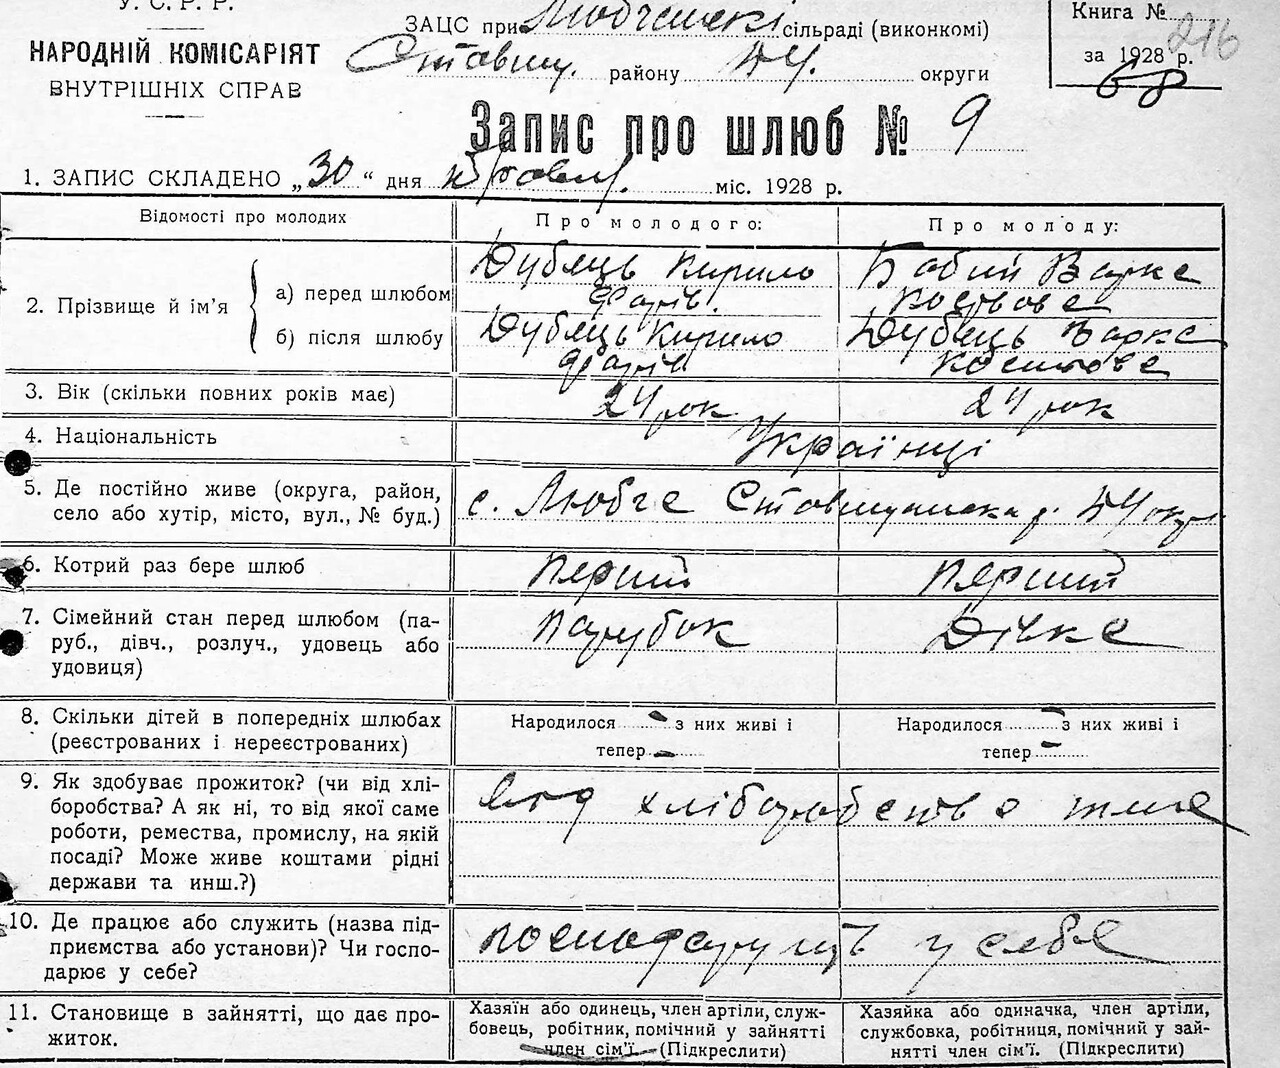 У. С. Р. Р.
НАРОДНІЙ КОМІСАРІЯТ
ВНУТРІШНІХ СПРАВ
ЗАЦС при сільраді (виконкомі)
району округи
Книга № 216
за 1928 р.
68
Запис про шлюб № 9
1. ЗАПИС СКЛАДЕНО „30“ дня міс. 1928 р.
Відомості про молодих
Про молодого:
Про молоду:
2. Прізвище й ім’я
а) перед шлюбом
Дубець Кирило
Бабий Варка
б) після шлюбу
Дубець Кирило
Дубець Варка
3. Вік (скільки повних років має)
24 рок
24 рок
4. Національність
Українці
5. Де постійно живе (округа, район,
село або хутір, місто, вул., № буд.)
с. Любча
6. Котрий раз бере шлюб
Перший
Перший
7. Сімейний стан перед шлюбом (па-
руб., дівч., розлуч., удовець або
удовиця)
Парубок
Дічка
8. Скільки дітей в попередніх шлюбах
(реєстрованих і нереєстрованих)
Народилося – з них живі і
тепер –
Народилося – з них живі і
тепер –
9. Як здобуває прожиток? (чи від хлі-
боробства? А як ні, то від якої саме
роботи, ремества, промислу, на якій
посаді? Може живе коштами рідні
держави та инш.?)
хліборобства
10. Де працює або служить (назва під-
приємства або установи)? Чи госпо-
дарює у себе?
у себя
11. Становище в зайнятті, що дає про-
житок.
Хазяїн або одинець, член артіли, служ-
бовець, робітник, помічний у зайнятті
член сім’ї. (Підкреслити)
Хазяйка або одиначка, член артіли,
службовка, робітниця, помічний у зай-
нятті член сім’ї. (Підкреслити)